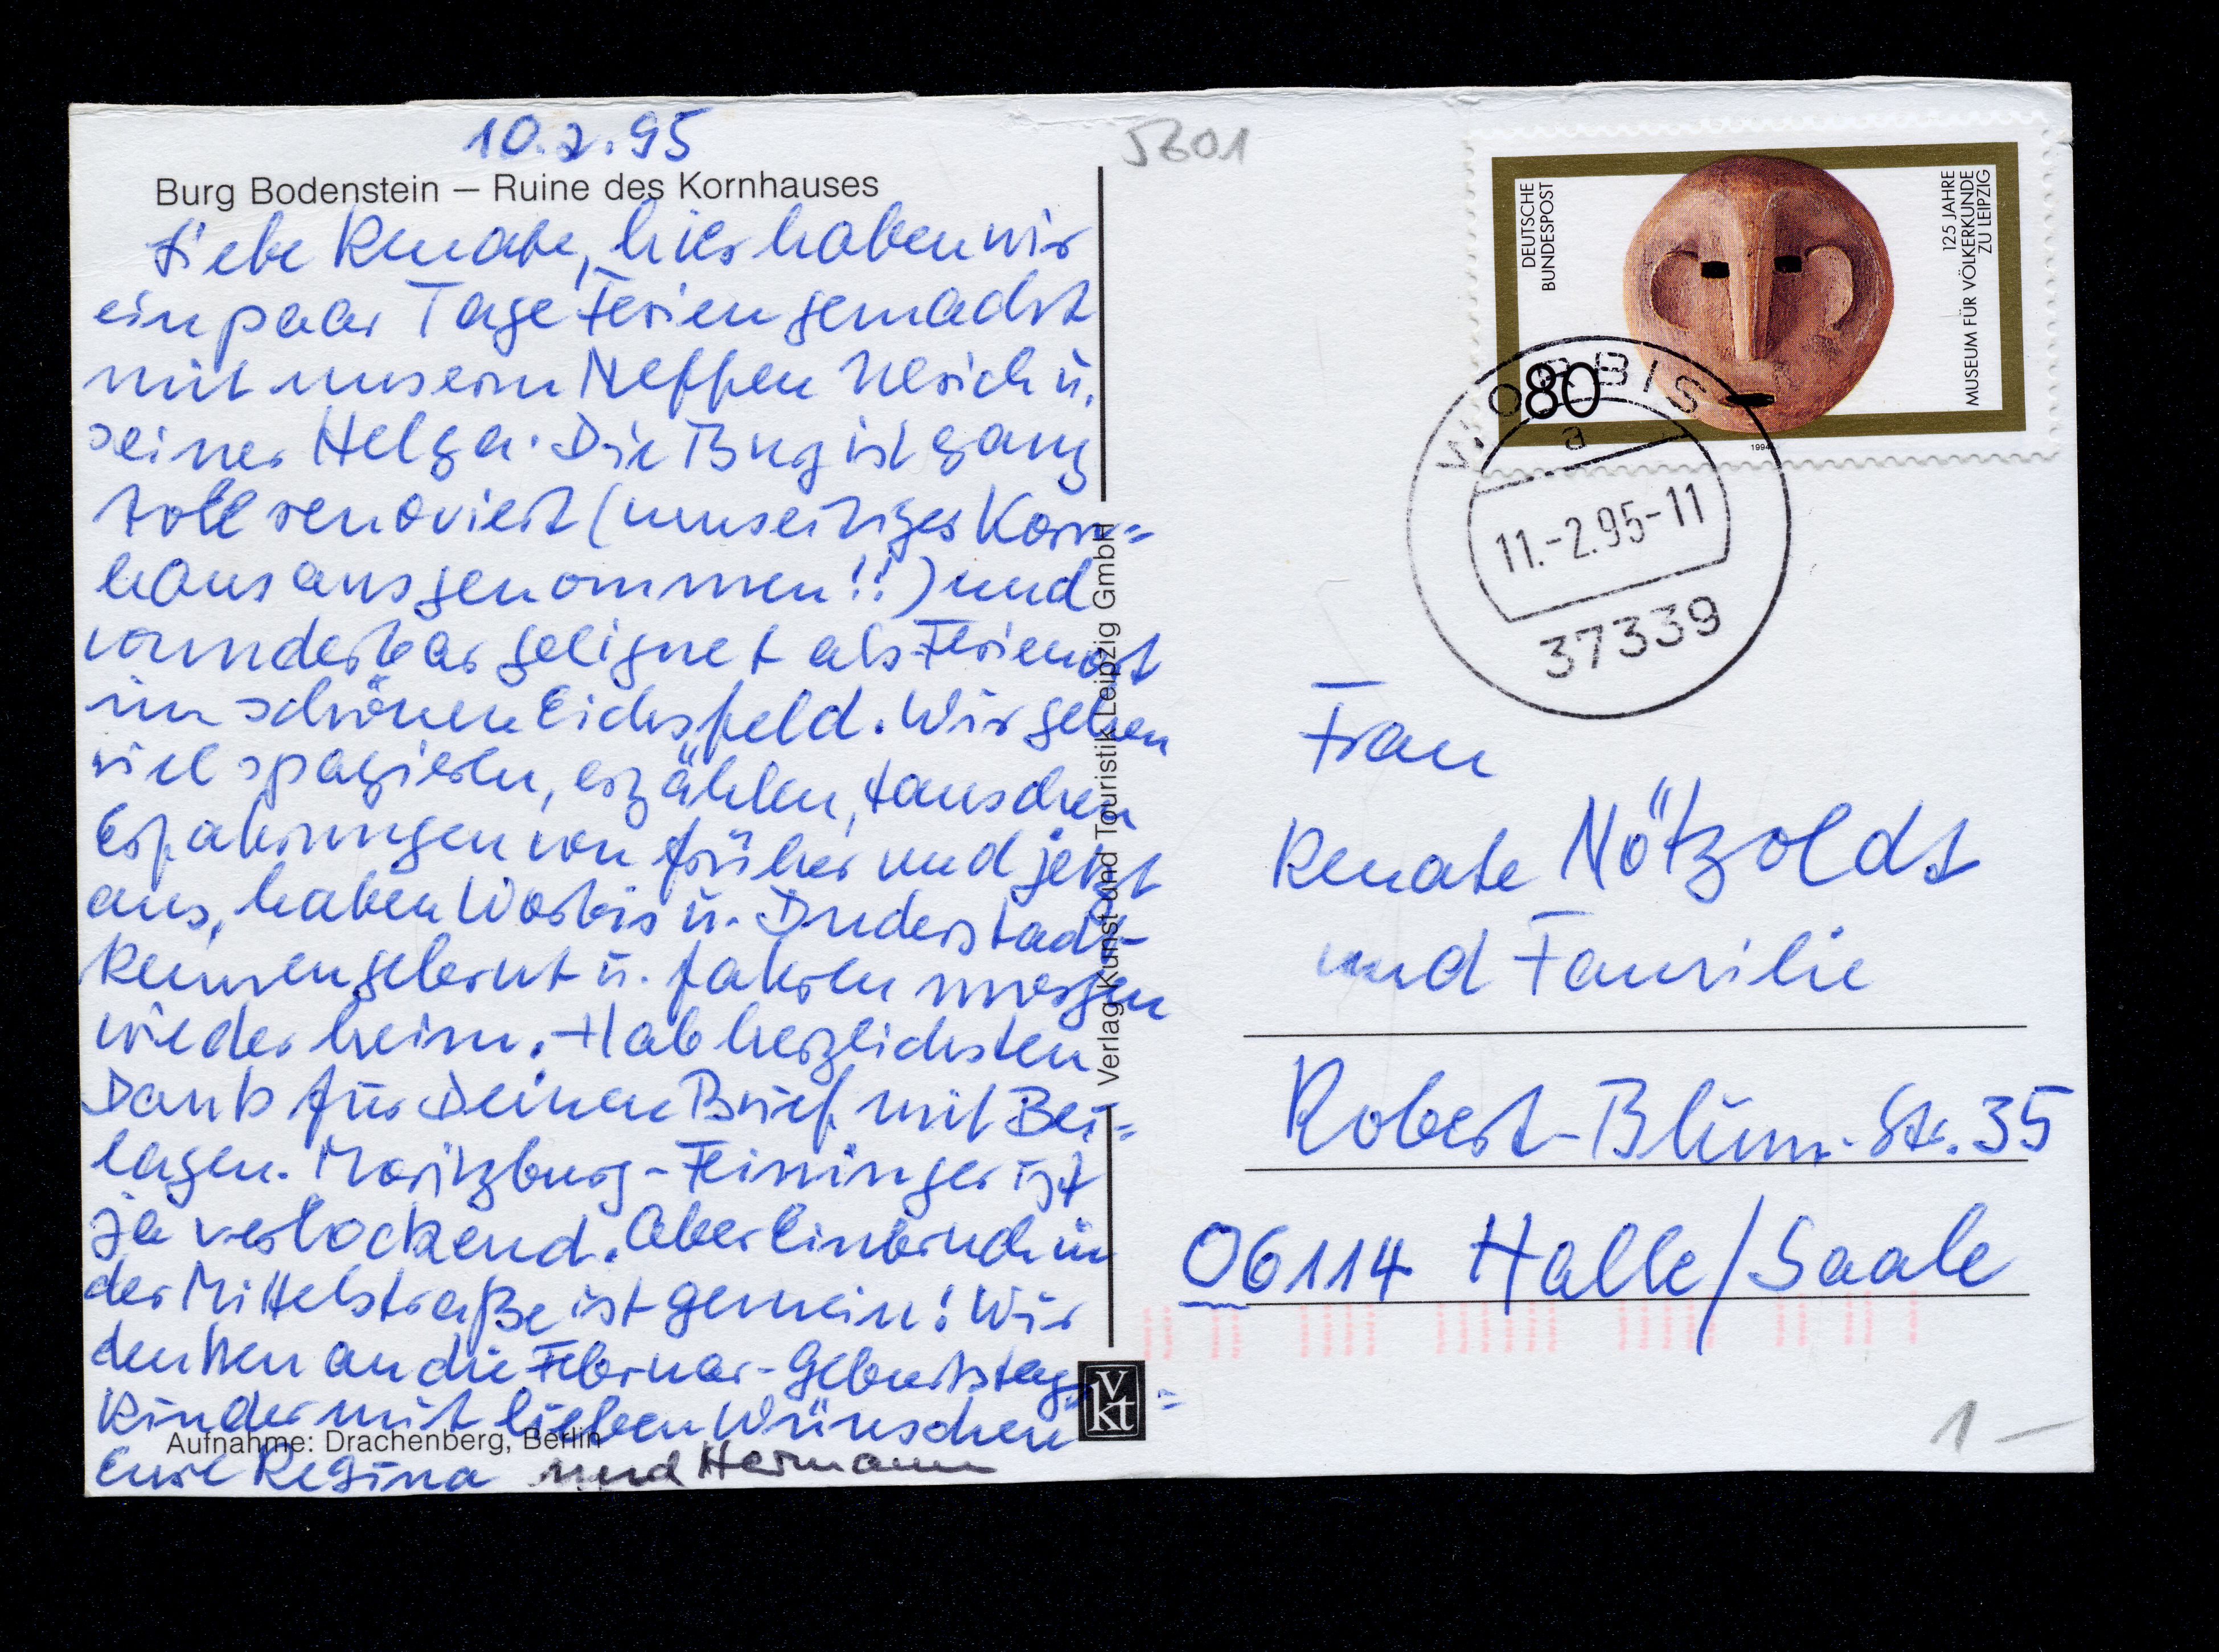 10.2.95
Burg Bodenstein – Ruine des Kornhauses
Liebe Renate, hier haben wir
ein paar Tage Ferien gemacht
mit unserm Neffen Ulrich u.
seiner Helga. Die Burg ist ganz
toll renoviert (umseitiges Korn=
haus ausgenommen!!) und
wunderbar geeignet als Ferienort
im schönen Eichsfeld. Wir gehen
viel spazieren, erzählen, tauschen
Erfahrungen von früher und jetzt
aus, haben Worbis u. Duderstadt
kennengelernt u. fahren morgen
wieder heim. Hab herzlichsten
Dank für Deinen Brief mit Bei=
lagen. Moritzburg-Feininger ist
ja verlockend. Aber Einbruch in
der Mittelstraße ist gemein! Wir
denken an die Februar-Geburtstags=
Kinder mit lieben Wünschen
Aufnahme: Drachenberg, Berlin
Eure Regina und Hermann
Verlag Kunst und Touristik Leipzig GmbH
vkt
5601
DEUTSCHE
BUNDESPOST
80
125 JAHRE
MUSEUM FÜR VÖLKERKUNDE
ZU LEIPZIG
1994
WORBIS
a
11.-2.95-11
37339
Frau
Renate Nötzoldt
und Familie
Robert-Blum-Str. 35
06114 Halle/Saale
1 –